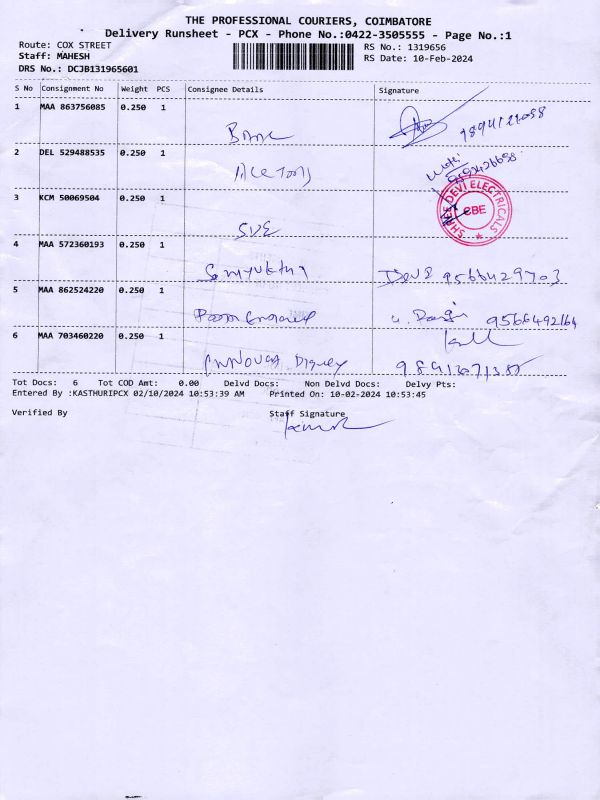 THE PROFESSIONAL COURIERS, COIMBATORE
Delivery Runsheet - PCX - Phone No.:0422-3505555 - Page No.:1
Route: COX STREET
RS No.: 1319656
Staff: MAHESH
RS Date: 10-Feb-2024
DRS No.: DCJB131965601
S No Consignment No Weight PCS Consignee Details Signature
1 MAA 863756085 0.250 1
2 DEL 529488535 0.250 1
Ace Tools
3 KCM 50069504 0.250 1
SHREE DEVI ELECTRICALS
CBE
SVE
4 MAA 572360193 0.250 1
Samyuktha 9566429703
5 MAA 862524220 0.250 1
9566492164
6 MAA 703460220 0.250 1
Tot Docs: 6 Tot COD Amt: 0.00 Delvd Docs: Non Delvd Docs: Delvy Pts:
Entered By :KASTHURIPCX 02/10/2024 10:53:39 AM Printed On: 10-02-2024 10:53:45
Verified By Staff Signature